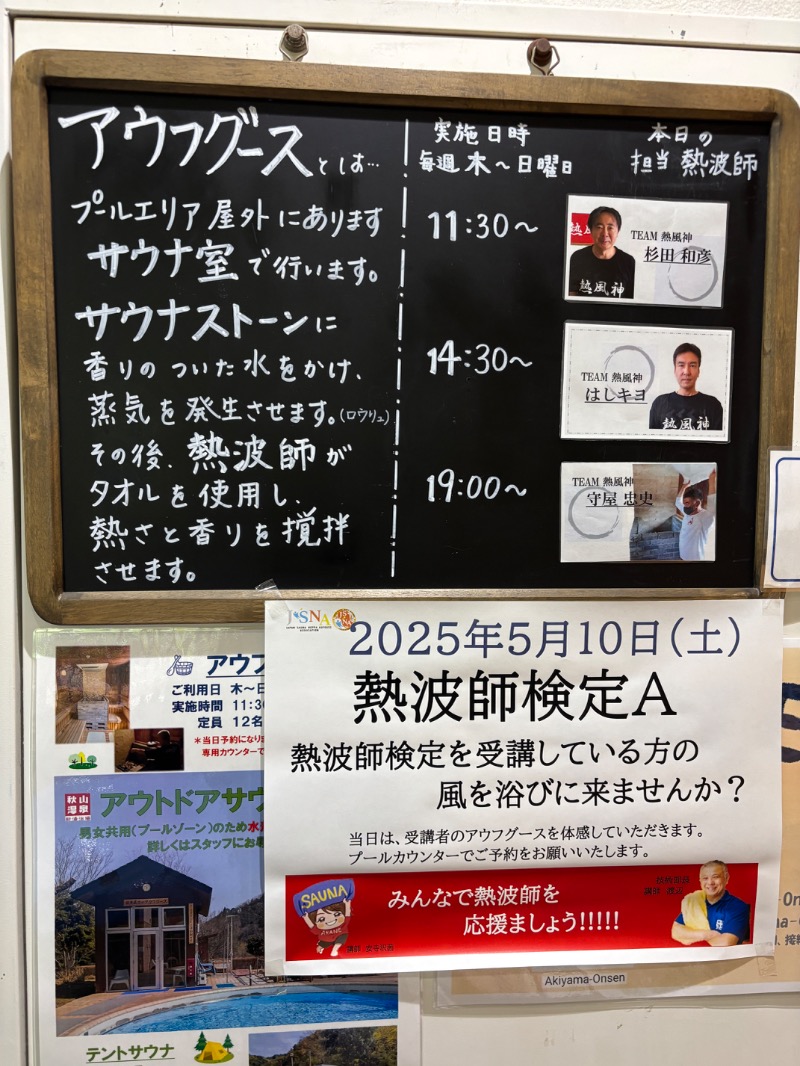 アウフグースとは…
プールエリア屋外にあります
サウナ室で行います。
サウナストーンに
香りのついた水をかけ、
蒸気を発生させます。(ロウリュ)
その後、熱波師が
タオルを使用し、
熱さと香りを撹拌
させます。
実施日時
毎週木～日曜日
本日の
担当 熱波師
11:30～
TEAM 熱風神
杉田 和彦
熱風神
14:30～
TEAM 熱風神
はしキヨ
熱風神
19:00～
TEAM 熱風神
守屋 忠史
JSNA
2025年5月10日(土)
熱波師検定A
熱波師検定を受講している方の
風を浴びに来ませんか？
当日は、受講者のアウフグースを体感していただきます。
プールカウンターでご予約をお願いいたします。
SAUNA
みんなで熱波師を
応援ましょう!!!!!
アウフ
ご利用日 木～日
実施時間 11:30
定員 12名
＊当日予約になりま
専用カウンターで
秋山
温泉
アウトドアサウ
男女共用(プールゾーン)のため水
詳しくはスタッフにお
テントサウナ
Akiyama-Onsen